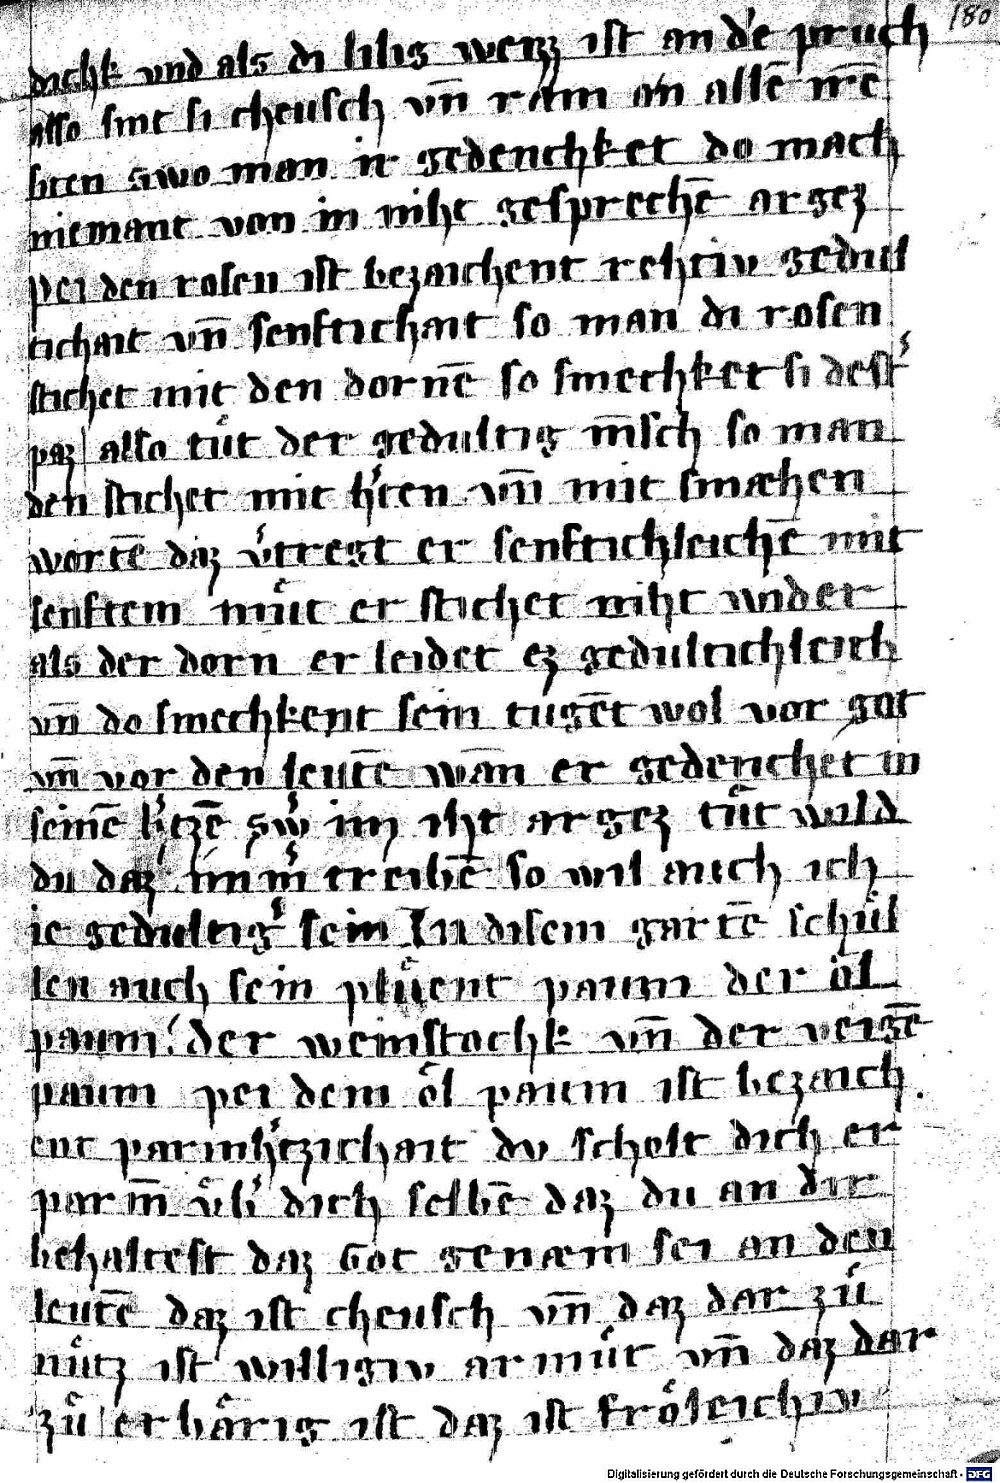 180
dichk vnd als di lilig weizz ist an dͤe pruch
also sint si cheusch vn̄ rain an allē irē
siten swo man ir gedenchket do mach
niemant von in niht gesprechē argez
pei den rosen ist bezaichent rehtiv gedul
tichait vn̄ senftichait so man di rosen
stichet mit den dornē so smechket si dest͛
paz also tuͤt der gedultig m̄sch so man
den stichet mit h͛ten vn̄ mit smæhen
wortē daz v͛tregt er senftichleichē mit
senftem muͤt er stichet niht wider
als der dorn er leidet ez gedultichleich
vn̄ do smechkent sein tugēt wol vor got
vn̄ vor den leutē wān er gedenchet in
seinē h͛tzē sw͛ im iht argez tuͤt wild
du daz imm͛ treibē so wil auch ich
ie gedultig͛ sein In disem gartē schuͤl
len auch sein pluͤent paum der oͤl
paum der weinstochk vn̄ der veigē
paum pei dem oͤl paum ist bezaich
ent parmh͛tzichait du scholt dich er
parm̄ vͤb͛ dich selbē daz du an dir
behaltest daz Got genæm sei an den
leutē daz ist cheusch vn̄ daz dar zuͤ
nuͤtz ist willigiv armuͤt vn̄ daz dar
zuͤ erbaͤrig ist daz ist froͤleichiv
Digitalisierung gefördert durch die Deutsche Forschungsgemeinschaft - DFG